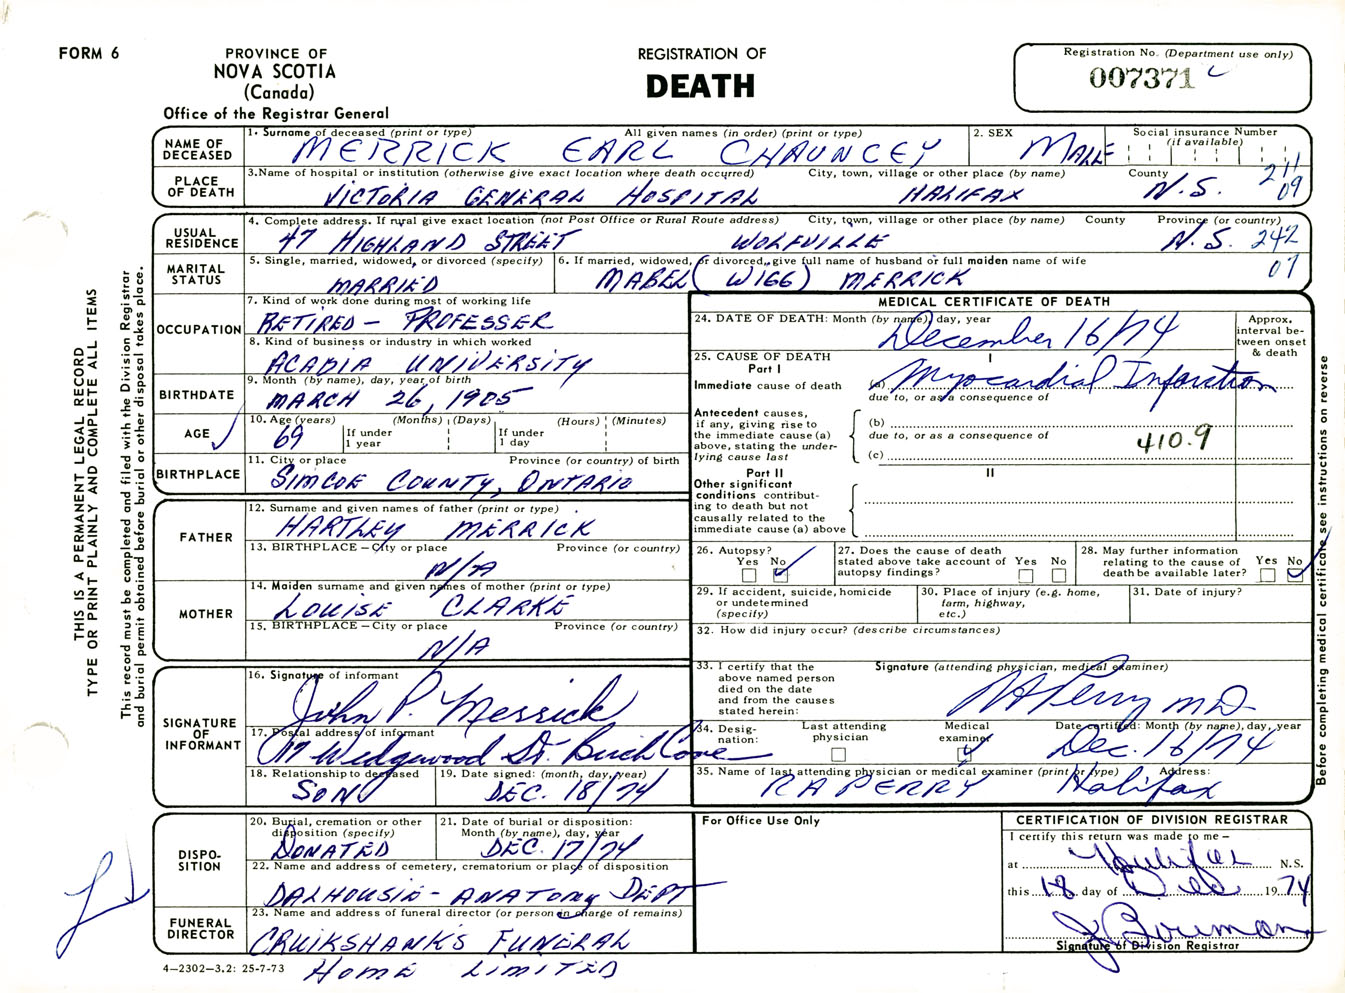 FORM 6
PROVINCE OF
NOVA SCOTIA
(Canada)
Office of the Registrar General
REGISTRATION OF
DEATH
Registration No. (Department use only)
007371
NAME OF DECEASED
1. Surname of deceased (print or type) All given names (in order) (print or type)
MERRICK EARL CHAUNCEY
2. SEX
MALE
Social insurance Number
(if available)
PLACE OF DEATH
3. Name of hospital or institution (otherwise give exact location where death occurred) City, town, village or other place (by name) County
VICTORIA GENERAL HOSPITAL HALIFAX N.S.
211
09
USUAL RESIDENCE
4. Complete address. If rural give exact location (not Post Office or Rural Route address) City, town, village or other place (by name) County Province (or country)
47 HIGHLAND STREET WOLFVILLE N.S. 242
07
MARITAL STATUS
5. Single, married, widowed, or divorced (specify)
MARRIED
6. If married, widowed, or divorced, give full name of husband or full maiden name of wife
MABEL (WIGG) MERRICK
OCCUPATION
7. Kind of work done during most of working life
RETIRED - PROFESSER
8. Kind of business or industry in which worked
ACADIA UNIVERSITY
BIRTHDATE
9. Month (by name), day, year of birth
MARCH 26, 1905
AGE
10. Age (years) (Months) (Days) (Hours) (Minutes)
69 If under 1 year If under 1 day
BIRTHPLACE
11. City or place Province (or country) of birth
SIMCOE COUNTY, ONTARIO
FATHER
12. Surname and given names of father (print or type)
HARTLEY MERRICK
13. BIRTHPLACE – City or place Province (or country)
N/A
MOTHER
14. Maiden surname and given names of mother (print or type)
LOUISE CLARKE
15. BIRTHPLACE – City or place Province (or country)
N/A
SIGNATURE OF INFORMANT
16. Signature of informant
John P. Merrick
17. Postal address of informant
17 Wedgewood St. Birch Cove
18. Relationship to deceased
SON
19. Date signed: (month, day, year)
DEC. 18/74
DISPO-
SITION
20. Burial, cremation or other disposition (specify)
DONATED
21. Date of burial or disposition: Month (by name), day, year
DEC. 17/74
22. Name and address of cemetery, crematorium or place of disposition
DALHOUSIE - ANATOMY DEPT
FUNERAL DIRECTOR
23. Name and address of funeral director (or person in charge of remains)
CRUIKSHANKS FUNERAL
HOME LIMITED
4–2302–3.2: 25-7-73
MEDICAL CERTIFICATE OF DEATH
24. DATE OF DEATH: Month (by name), day, year
December 16/74
Approx. interval be-
tween onset & death
25. CAUSE OF DEATH
Part I
I
Immediate cause of death (a) Myocardial Infarction
due to, or as a consequence of
Antecedent causes, if any, giving rise to the immediate cause (a) above, stating the under-
lying cause last
(b)
due to, or as a consequence of
410.9
(c)
Part II
II
Other significant conditions contribut-
ing to death but not causally related to the immediate cause (a) above
26. Autopsy?
Yes No
27. Does the cause of death stated above take account of autopsy findings?
Yes No
28. May further information relating to the cause of death be available later?
Yes No
29. If accident, suicide, homicide or undetermined (specify)
30. Place of injury (e.g. home, farm, highway, etc.)
31. Date of injury?
32. How did injury occur? (describe circumstances)
33. I certify that the above named person died on the date and from the causes stated herein:
Signature (attending physician, medical examiner)
RA Perry MD
34. Desig-
nation:
Last attending physician
Medical examiner
Date certified: Month (by name), day, year
Dec. 16/74
35. Name of last attending physician or medical examiner (print or type) Address:
RA PERRY Halifax
For Office Use Only
CERTIFICATION OF DIVISION REGISTRAR
I certify this return was made to me –
at Halifax N.S.
this 18 day of Dec 19 74
J. Bowman
Signature of Division Registrar
THIS IS A PERMANENT LEGAL RECORD
TYPE OR PRINT PLAINLY AND COMPLETE ALL ITEMS
This record must be completed and filed with the Division Registrar
and burial permit obtained before burial or other disposal takes place.
Before completing medical certificate see instructions on reverse